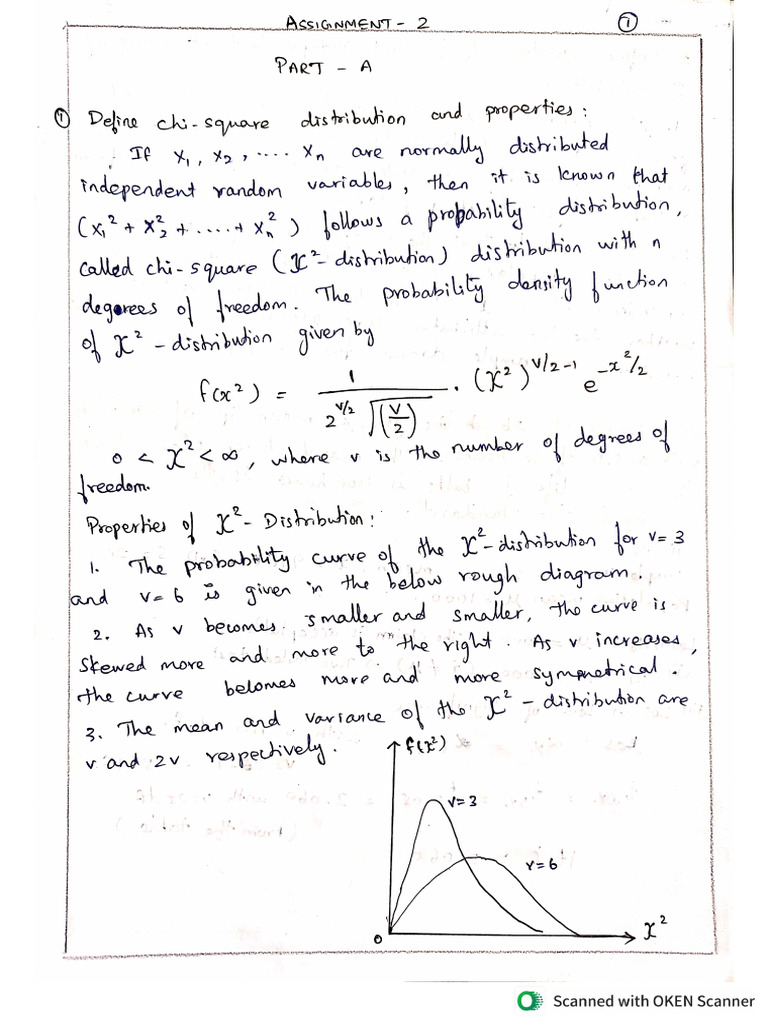 ASSIGNMENT - 2
1
PART - A
1 Define chi-square distribution and properties :
If x₁, x₂, .... xₙ are normally distributed
independent random variables, then it is known that
(x₁² + x₂² + ..... + xₙ²) follows a probability distribution,
called chi-square (χ²- distribution) distribution with n
degrees of freedom. The probability density function
of χ² - distribution given by
f(x²) = 1 / (2^(v/2) √(v/2)) . (χ²)^(v/2-1) e^(-x²/2)
0 < χ² < ∞, where v is the number of degrees of
freedom.
Properties of χ²- Distribution :
1. The probability curve of the χ²-distribution for v= 3
and v= 6 is given in the below rough diagram.
2. As v becomes smaller and smaller, the curve is
skewed more and more to the right. As v increases,
the curve becomes more and more symmetrical.
3. The mean and variance of the χ² - distribution are
v and 2v respectively.
f(χ²)
v=3
v=6
0
χ²
Scanned with OKEN Scanner